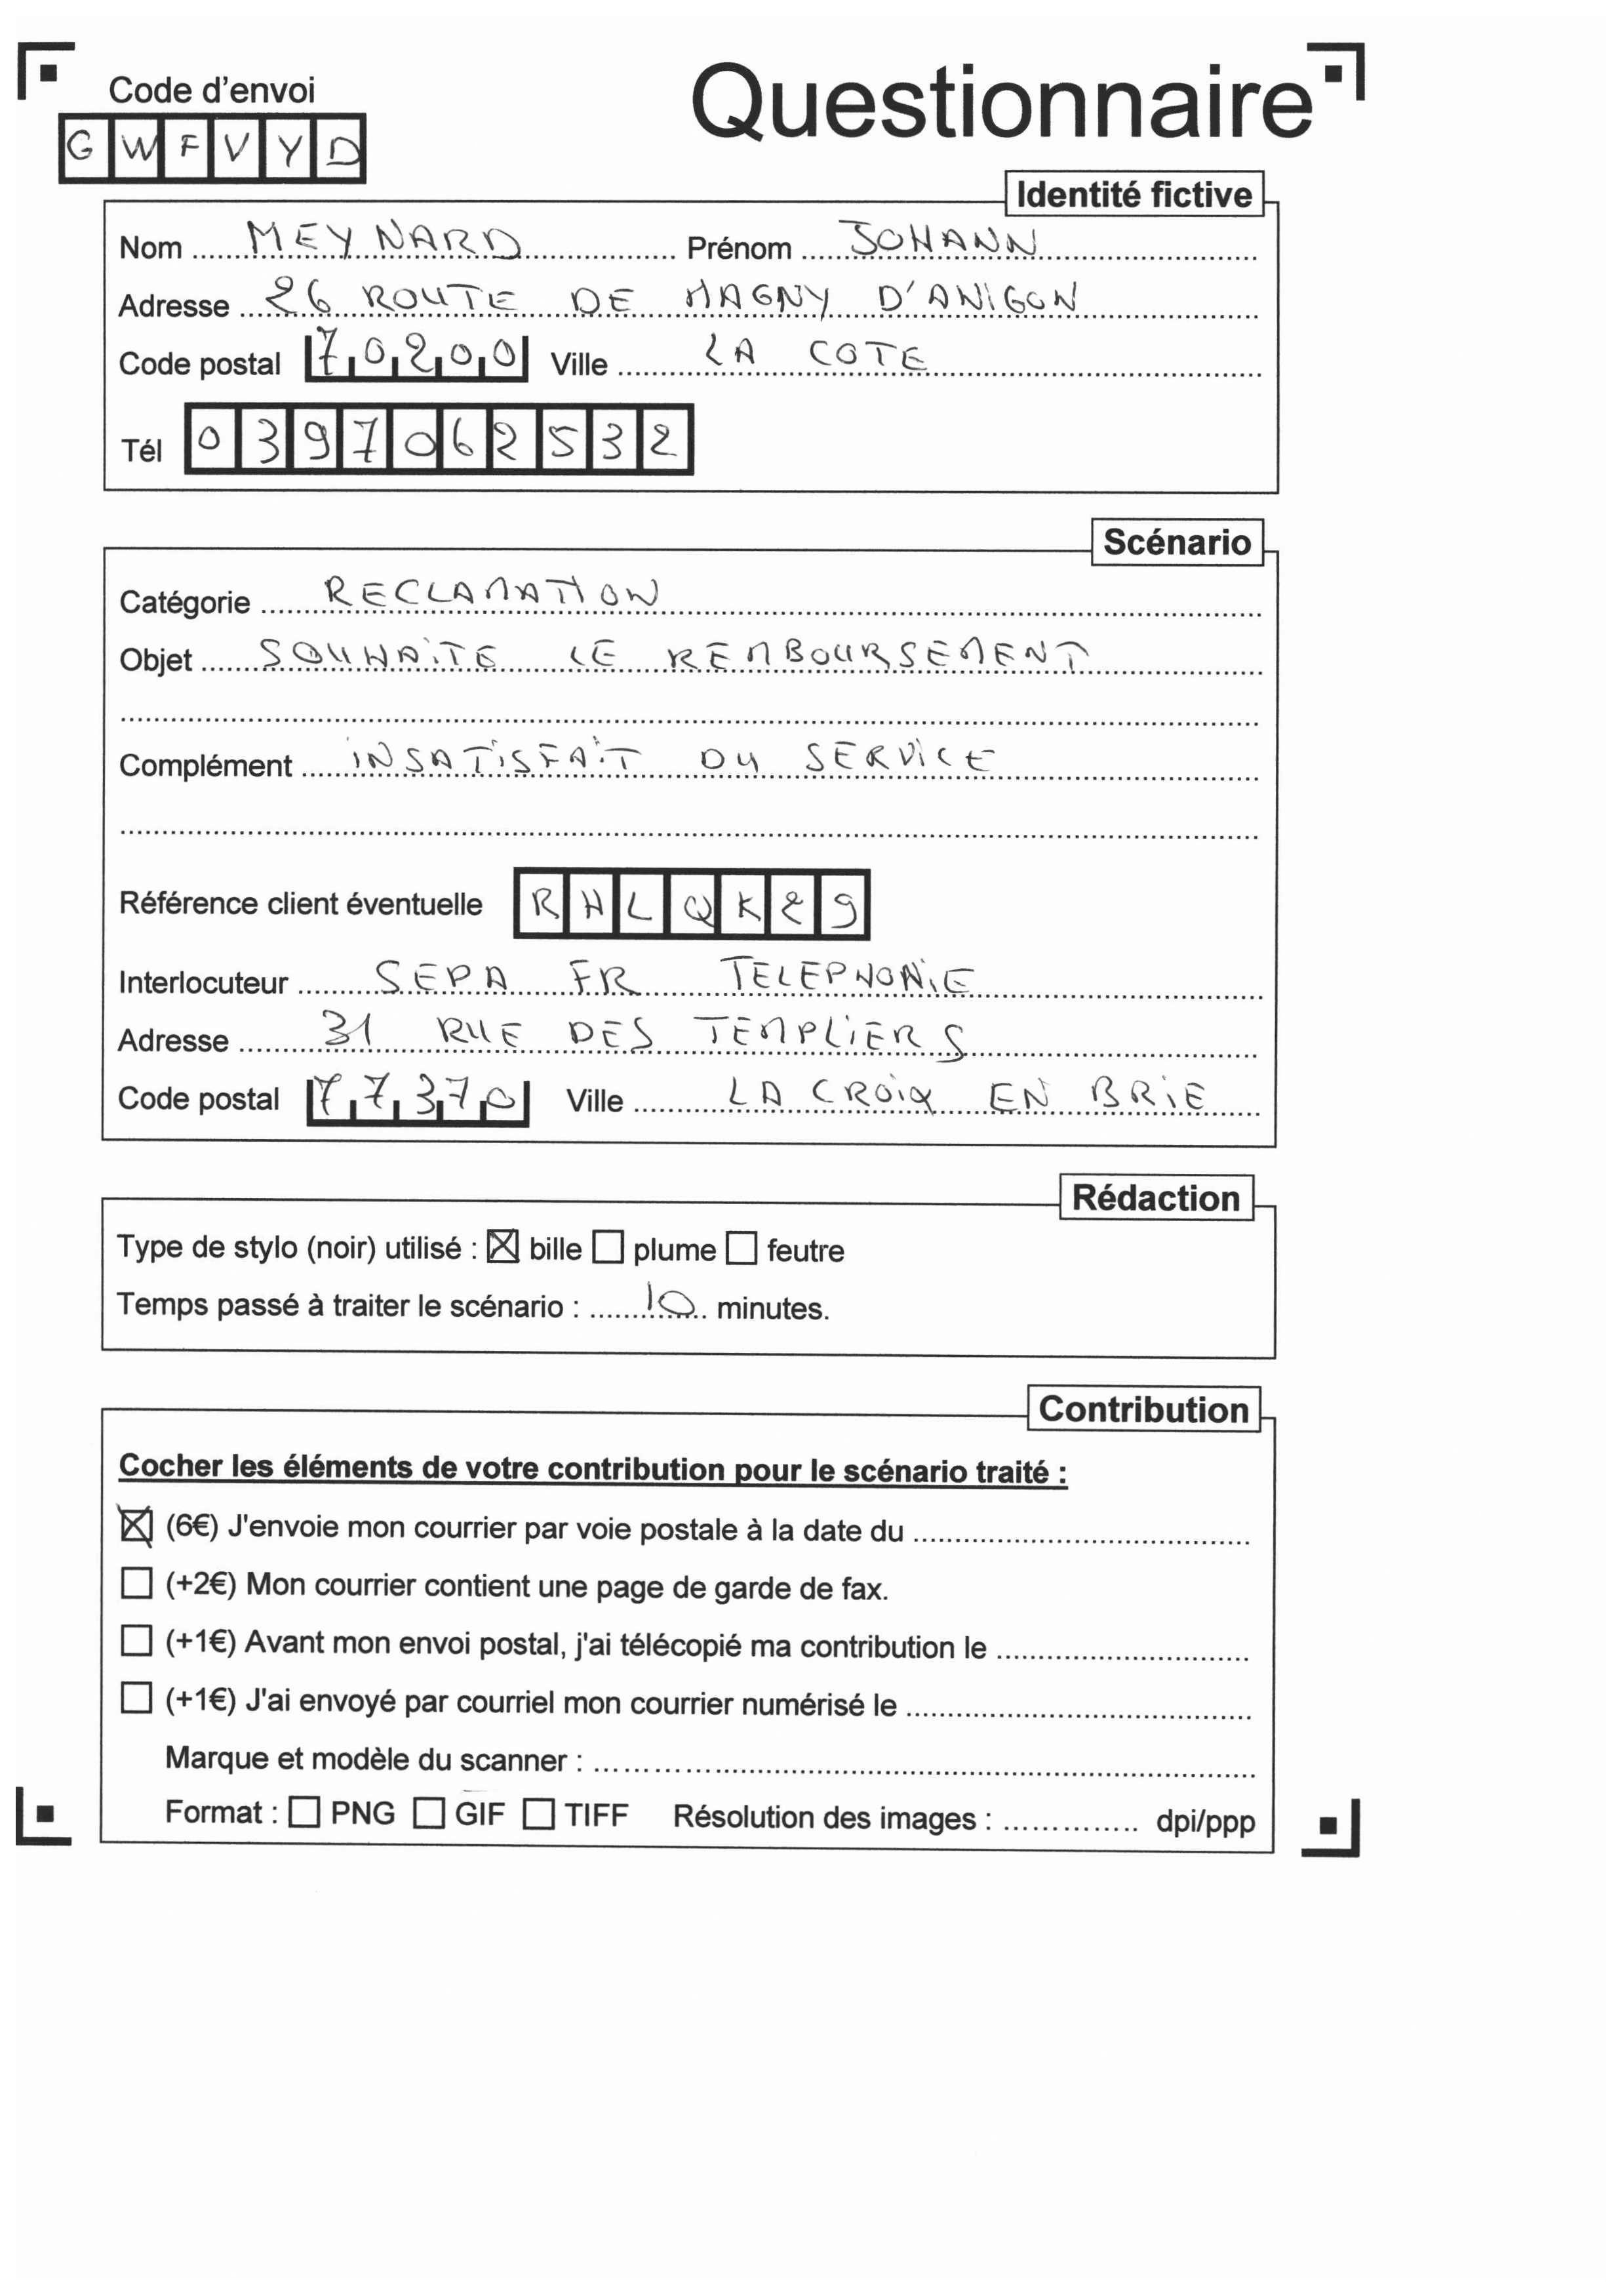 Code d'envoi
Questionnaire
GWFVYD
Identité fictive
Nom MEYNARD Prénom JOHANN
Adresse 26 ROUTE DE MAGNY D'ANIGON
Code postal 70200 Ville LA COTE
Tél 0397062532
Scénario
Catégorie RECLAMATION
Objet SOUHAITE LE REMBOURSEMENT
Complément INSATISFAIT DU SERVICE
Référence client éventuelle RHLQK29
Interlocuteur SEPA FR TELEPHONIE
Adresse 31 RUE DES TEMPLIERS
Code postal 77370 Ville LA CROIX EN BRIE
Rédaction
Type de stylo (noir) utilisé : ☒ bille ☐ plume ☐ feutre
Temps passé à traiter le scénario : 10 minutes.
Contribution
Cocher les éléments de votre contribution pour le scénario traité :
☒ (6€) J'envoie mon courrier par voie postale à la date du
☐ (+2€) Mon courrier contient une page de garde de fax.
☐ (+1€) Avant mon envoi postal, j'ai télécopié ma contribution le
☐ (+1€) J'ai envoyé par courriel mon courrier numérisé le
Marque et modèle du scanner :
Format : ☐ PNG ☐ GIF ☐ TIFF Résolution des images : dpi/ppp